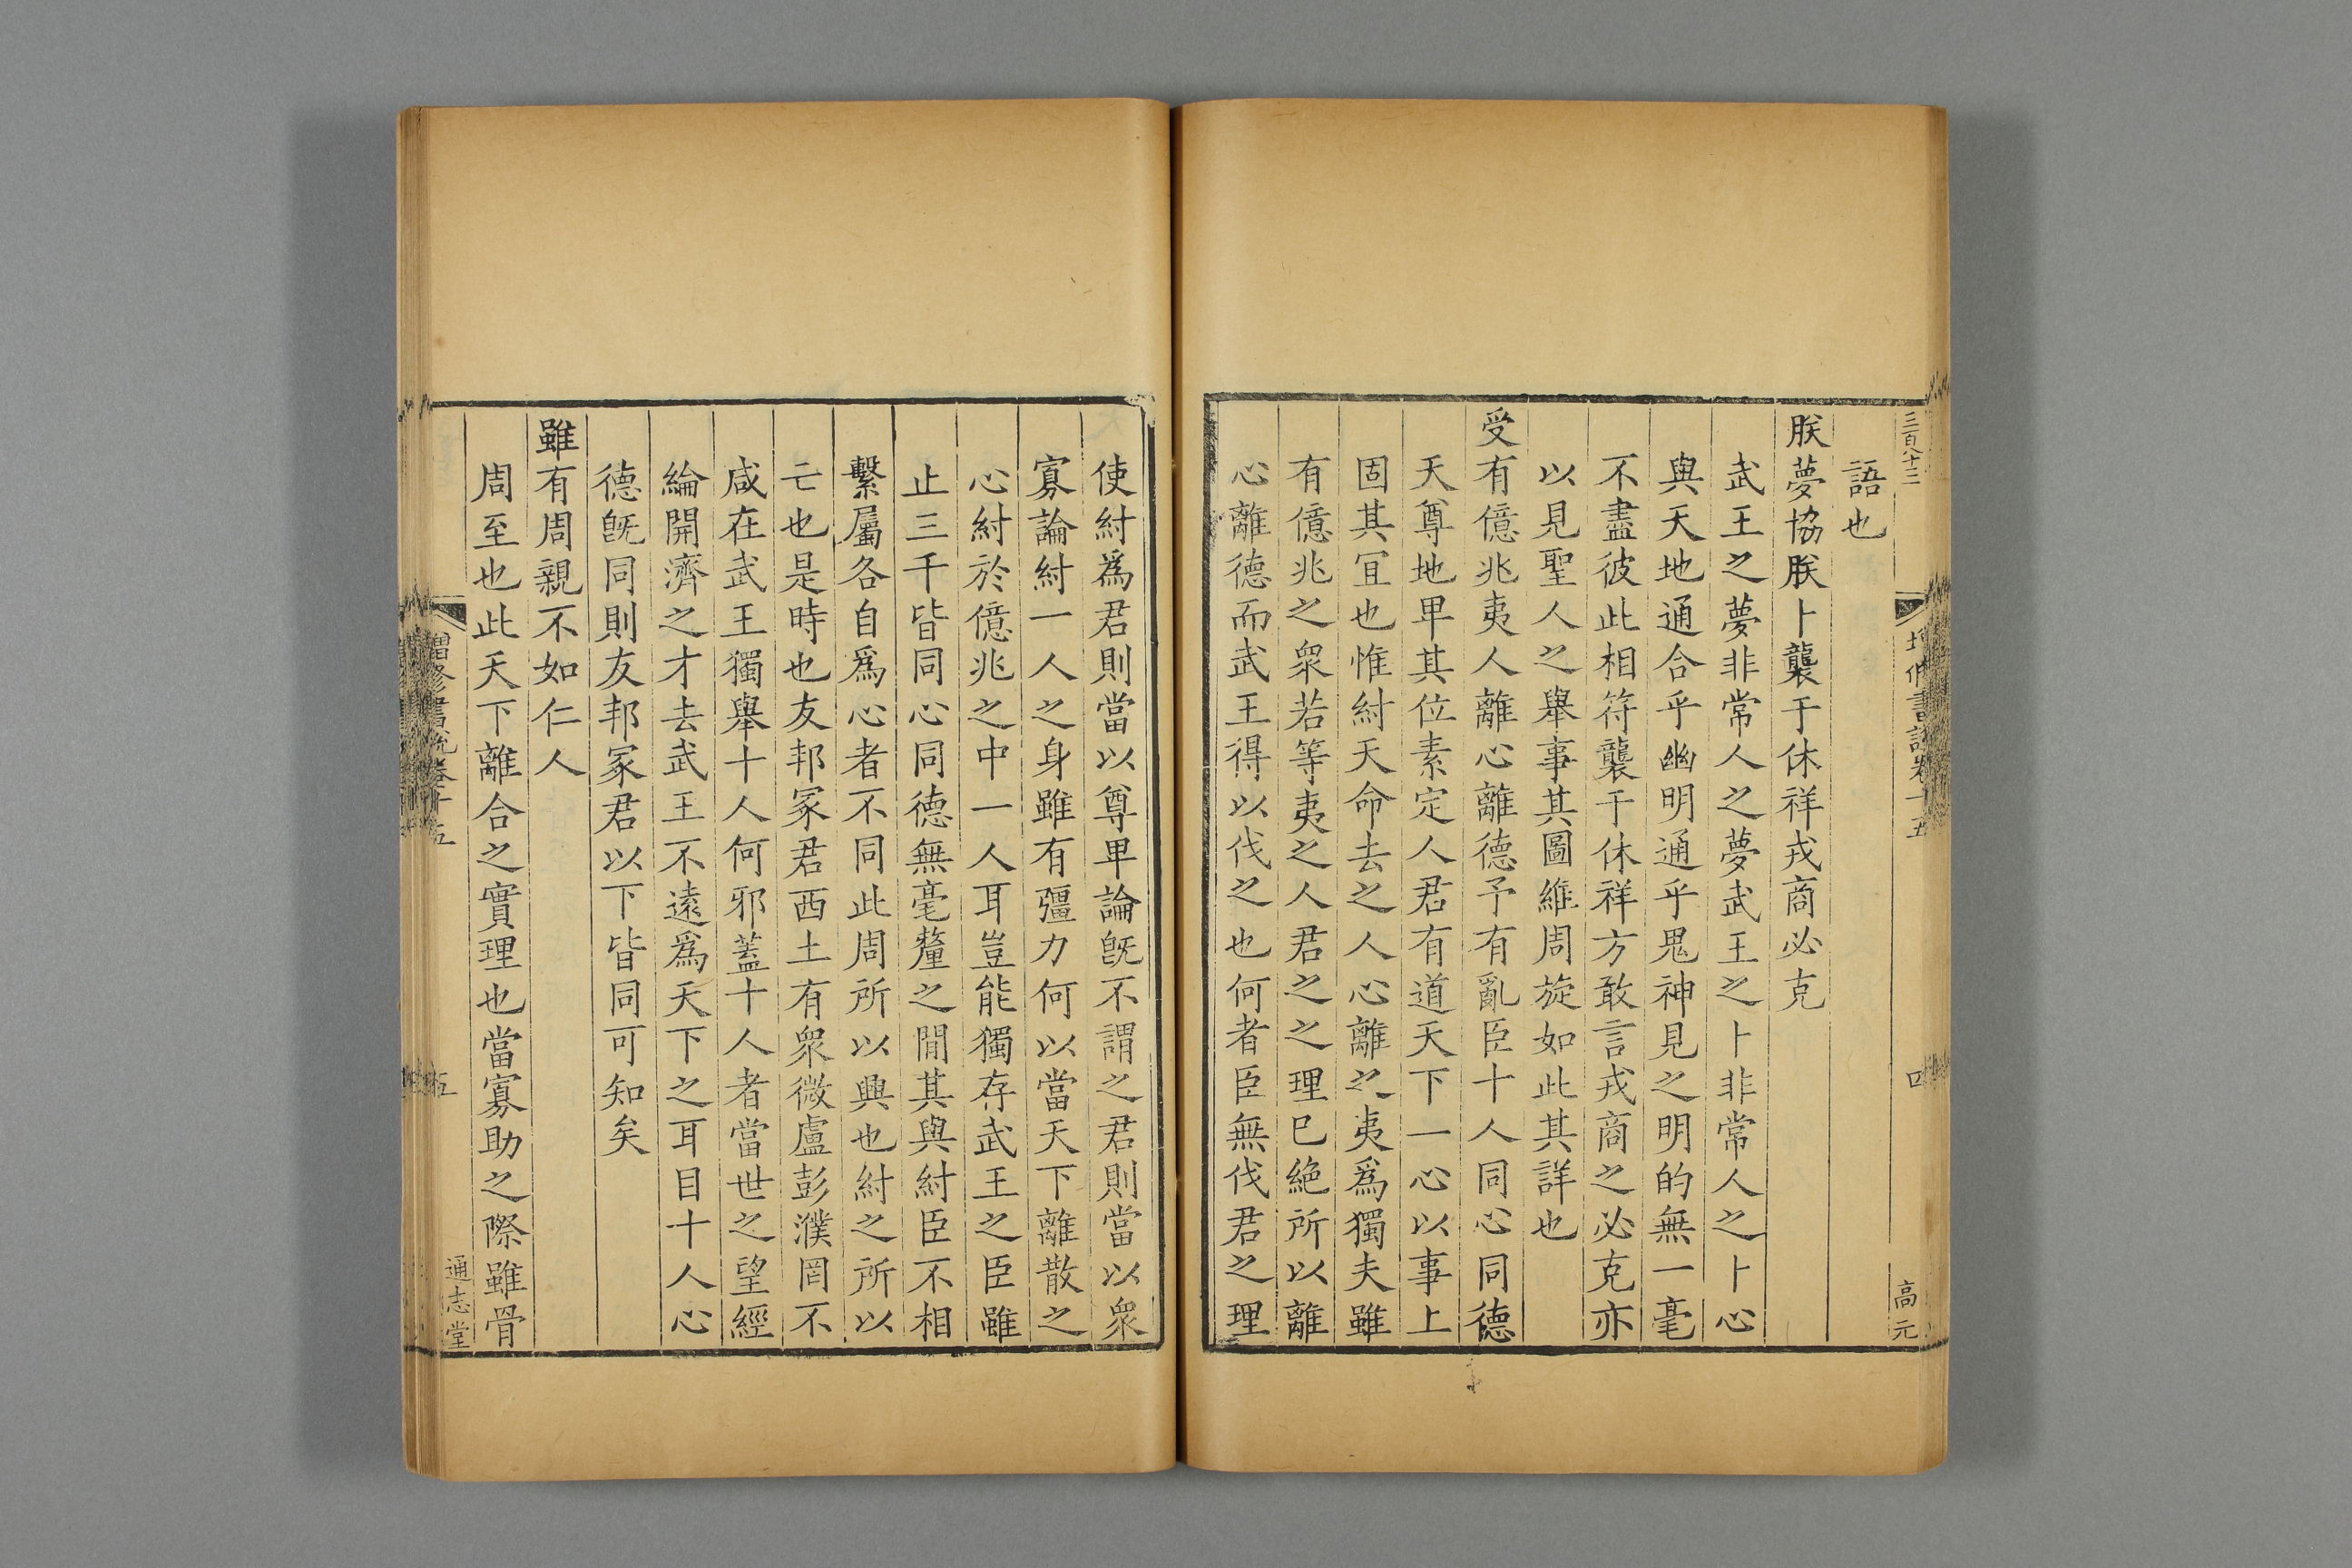 三百八十三
增修書說卷十五
四
高元
語也
朕夢協朕卜襲于休祥戎商必克
武王之夢非常人之夢武王之卜非常人之卜心
與天地通合乎幽明通乎鬼神見之明的無一毫
不盡彼此相符襲于休祥方敢言戎商之必克亦
以見聖人之舉事其圖維周旋如此其詳也
受有億兆夷人離心離德予有亂臣十人同心同德
天尊地卑其位素定人君有道天下一心以事上
固其宜也惟紂天命去之人心離之夷爲獨夫雖
有億兆之衆若等夷之人君之之理已絕所以離
心離德而武王得以伐之也何者臣無伐君之理
使紂爲君則當以尊卑論旣不謂之君則當以衆
寡論紂一人之身雖有彊力何以當天下離散之
心紂於億兆之中一人耳豈能獨存武王之臣雖
止三千皆同心同德無毫釐之閒其與紂臣不相
繫屬各自爲心者不同此周所以興也紂之所以
亡也是時也友邦冢君西土有衆微盧彭濮罔不
咸在武王獨舉十人何邪蓋十人者當世之望經
綸開濟之才去武王不遠爲天下之耳目十人心
德旣同則友邦冢君以下皆同可知矣
雖有周親不如仁人
周至也此天下離合之實理也當寡助之際雖骨
增修書說卷十五
五
通志堂